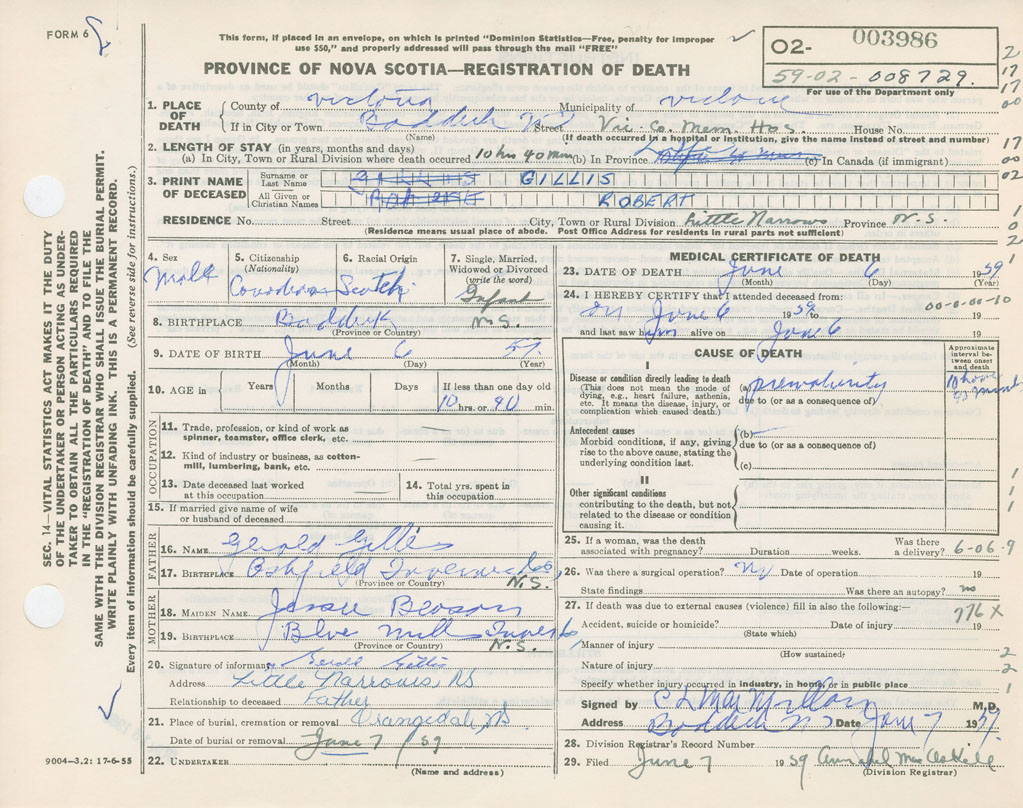 FORM 6
This form, if placed in an envelope, on which is printed "Dominion Statistics—Free, penalty for improper
use $50," and properly addressed will pass through the mail "FREE"
PROVINCE OF NOVA SCOTIA—REGISTRATION OF DEATH
02- 003986
59-02-008729.
For use of the Department only
SEC. 14—VITAL STATISTICS ACT MAKES IT THE DUTY
OF THE UNDERTAKER OR PERSON ACTING AS UNDER-
TAKER TO OBTAIN ALL THE PARTICULARS REQUIRED
IN THE "REGISTRATION OF DEATH" AND TO FILE THE
SAME WITH THE DIVISION REGISTRAR WHO SHALL ISSUE THE BURIAL PERMIT.
WRITE PLAINLY WITH UNFADING INK. THIS IS A PERMANENT RECORD.
Every item of information should be carefully supplied. (See reverse side for instructions.)
1. PLACE OF DEATH
County of Victoria Municipality of Victoria
If in City or Town Baddeck NS Street Vic. Co. Mem. Hos. House No.
(Name) (If death occurred in a hospital or institution, give the name instead of street and number)
2. LENGTH OF STAY (in years, months and days)
(a) In City, Town or Rural Division where death occurred 10 hrs 40 min (b) In Province Life (c) In Canada (if immigrant)
3. PRINT NAME OF DECEASED
Surname or Last Name GILLIS
All Given or Christian Names ROBERT
RESIDENCE No. Street City, Town or Rural Division Little Narrows Province N.S.
(Residence means usual place of abode. Post Office Address for residents in rural parts not sufficient)
4. Sex
Male
5. Citizenship
(Nationality)
Canadian
6. Racial Origin
Scotch
7. Single, Married,
Widowed or Divorced
(write the word)
Infant
8. BIRTHPLACE Baddeck N.S.
(Province or Country)
9. DATE OF BIRTH June 6 59
(Month) (Day) (Year)
10. AGE in Years Months Days If less than one day old
10 hrs. or 40 min.
OCCUPATION
11. Trade, profession, or kind of work as
spinner, teamster, office clerk, etc. —
12. Kind of industry or business, as cotton-
mill, lumbering, bank, etc. —
13. Date deceased last worked
at this occupation
14. Total yrs. spent in
this occupation
15. If married give name of wife
or husband of deceased
FATHER
16. NAME Gerald Gillis
17. BIRTHPLACE Inverness Co. N.S.
(Province or Country)
MOTHER
18. MAIDEN NAME Jessie
19. BIRTHPLACE Blue Mills N.S.
(Province or Country)
20. Signature of informant Gerald Gillis
Address Little Narrows NS
Relationship to deceased Father
21. Place of burial, cremation or removal Orangedale, NS
Date of burial or removal June 7 / 59
22. UNDERTAKER
(Name and address)
9004-3,2: 17-6-55
MEDICAL CERTIFICATE OF DEATH
23. DATE OF DEATH June 6 1959
(Month) (Day) (Year)
24. I HEREBY CERTIFY that I attended deceased from: 00-0-00-10
on June 6 1959 to
and last saw him alive on June 6
CAUSE OF DEATH
Approximate
interval be-
tween onset
and death
I
Disease or condition directly leading to death
(This does not mean the mode of
dying, e.g., heart failure, asthenia,
etc. It means the disease, injury, or
complication which caused death.)
(a) prematurity
due to (or as a consequence of)
10 hours
Antecedent causes
Morbid conditions, if any, giving
rise to the above cause, stating the
underlying condition last.
(b) —
due to (or as a consequence of)
(c)
II
Other significant conditions
contributing to the death, but not
related to the disease or condition
causing it.
25. If a woman, was the death
associated with pregnancy? Duration weeks. Was there
a delivery? 6-06-9
26. Was there a surgical operation? No Date of operation 19
State findings Was there an autopsy? no
27. If death was due to external causes (violence) fill in also the following:—
776X
Accident, suicide or homicide? Date of injury 19
(State which)
Manner of injury
(How sustained)
Nature of injury
Specify whether injury occurred in industry, in home, or in public place
Signed by C L MacMillan M.D.
Address Baddeck N.S Date June 7 1959
28. Division Registrar's Record Number
29. Filed June 7 1959
(Division Registrar)
2
17
17
00
17
00
02
1
0
2
1
1
1
1
1
2
2
1